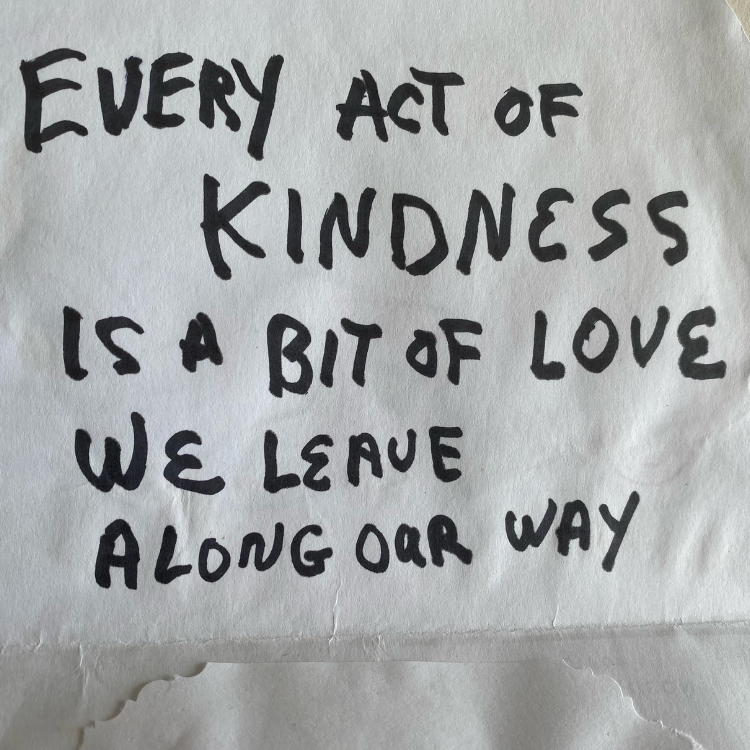 EVERY ACT OF
KINDNESS
IS A BIT OF LOVE
WE LEAVE
ALONG OUR WAY